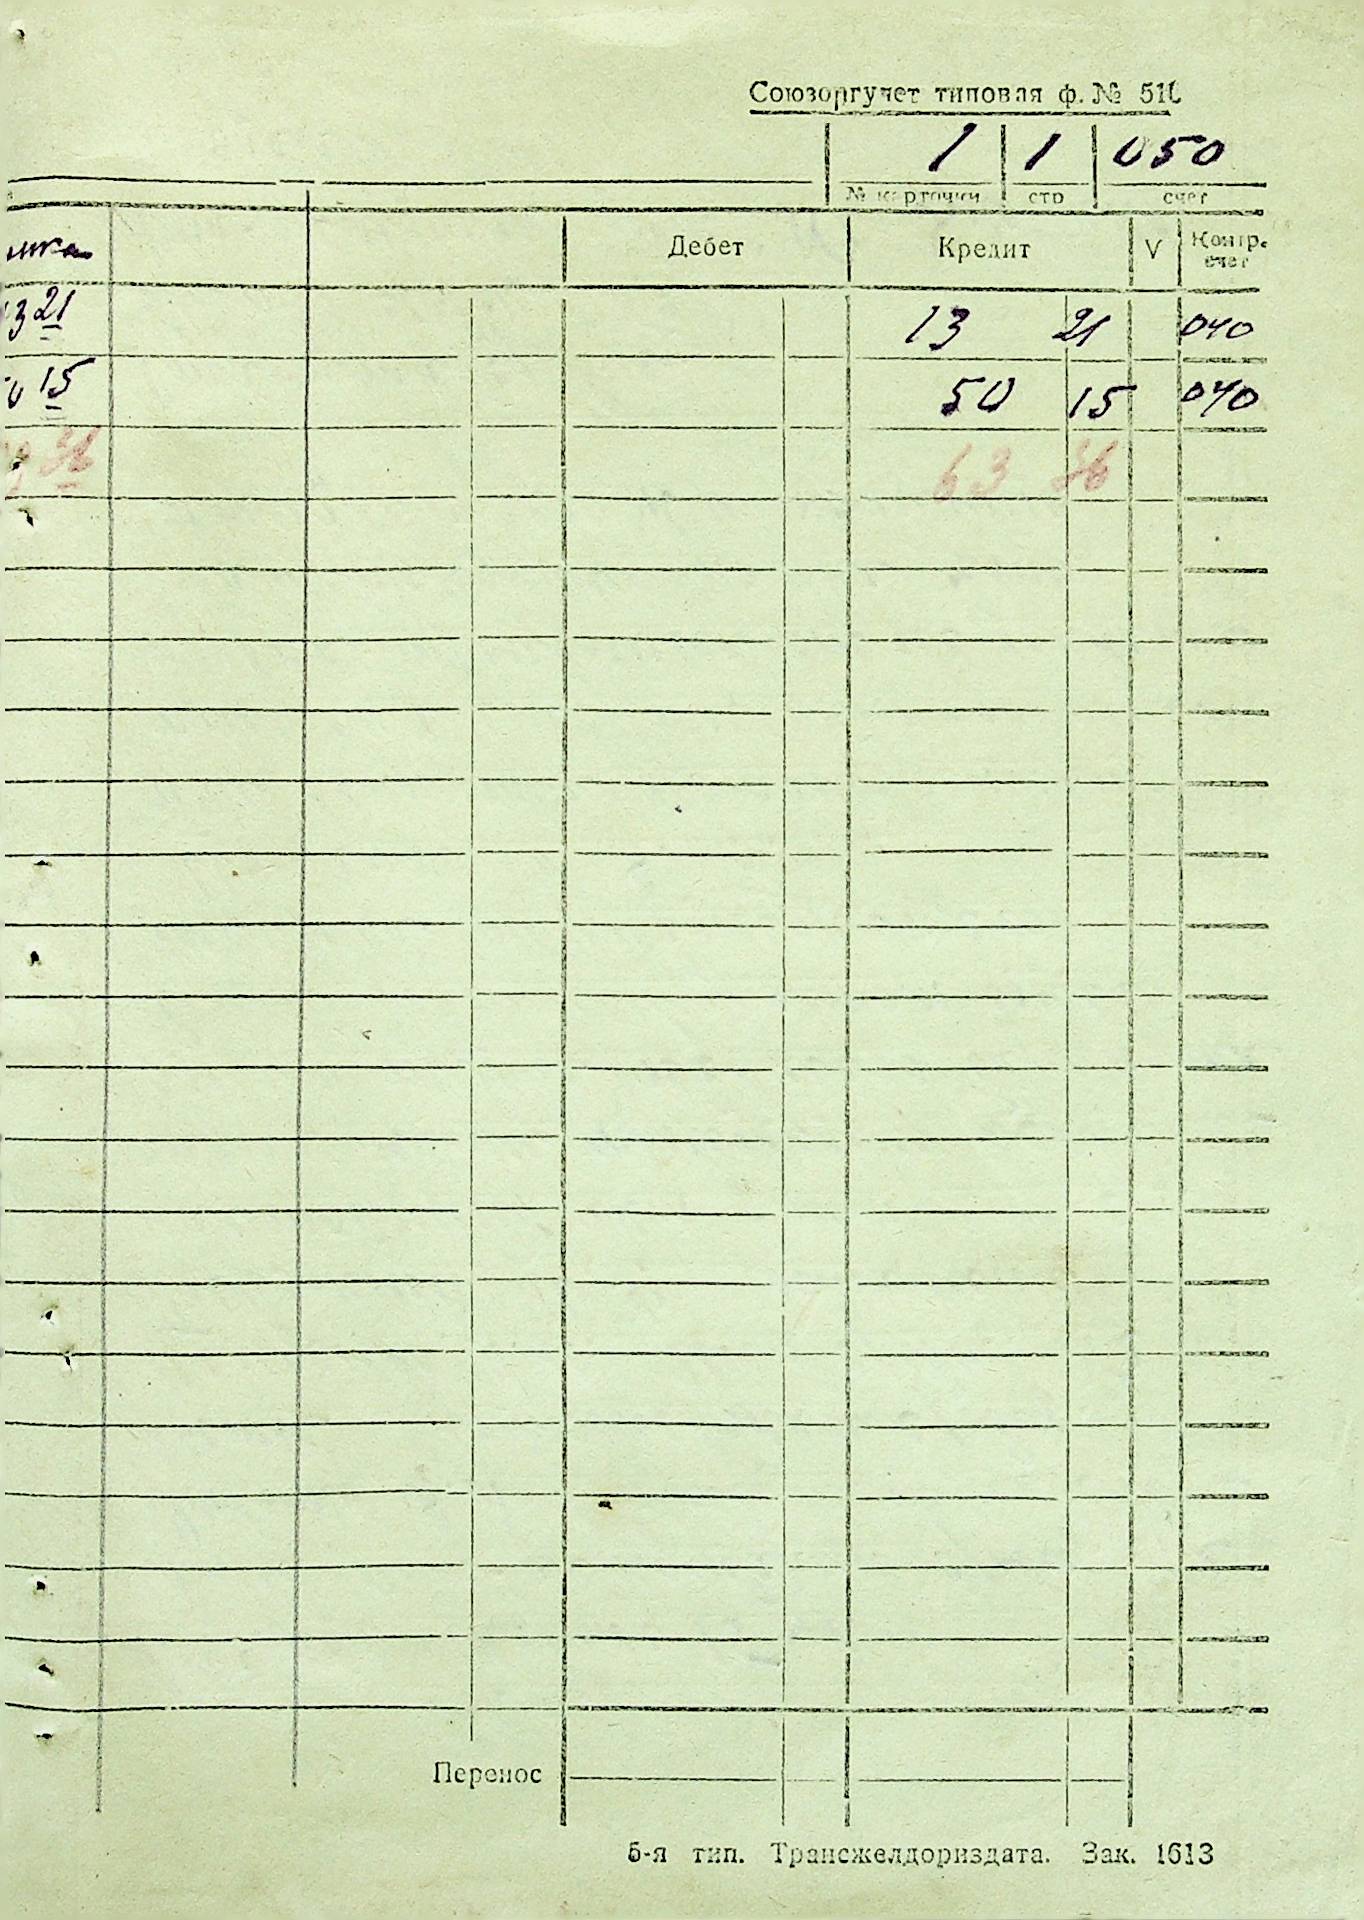 Союзоргучет типовая ф. № 510
1 1 050
№ карточки стр счет
Дебет Кредит V Контр. счет
21 13 21 040
15 50 15 040
36 63 36
Перенос
5-я тип. Трансжелдориздата. Зак. 1613